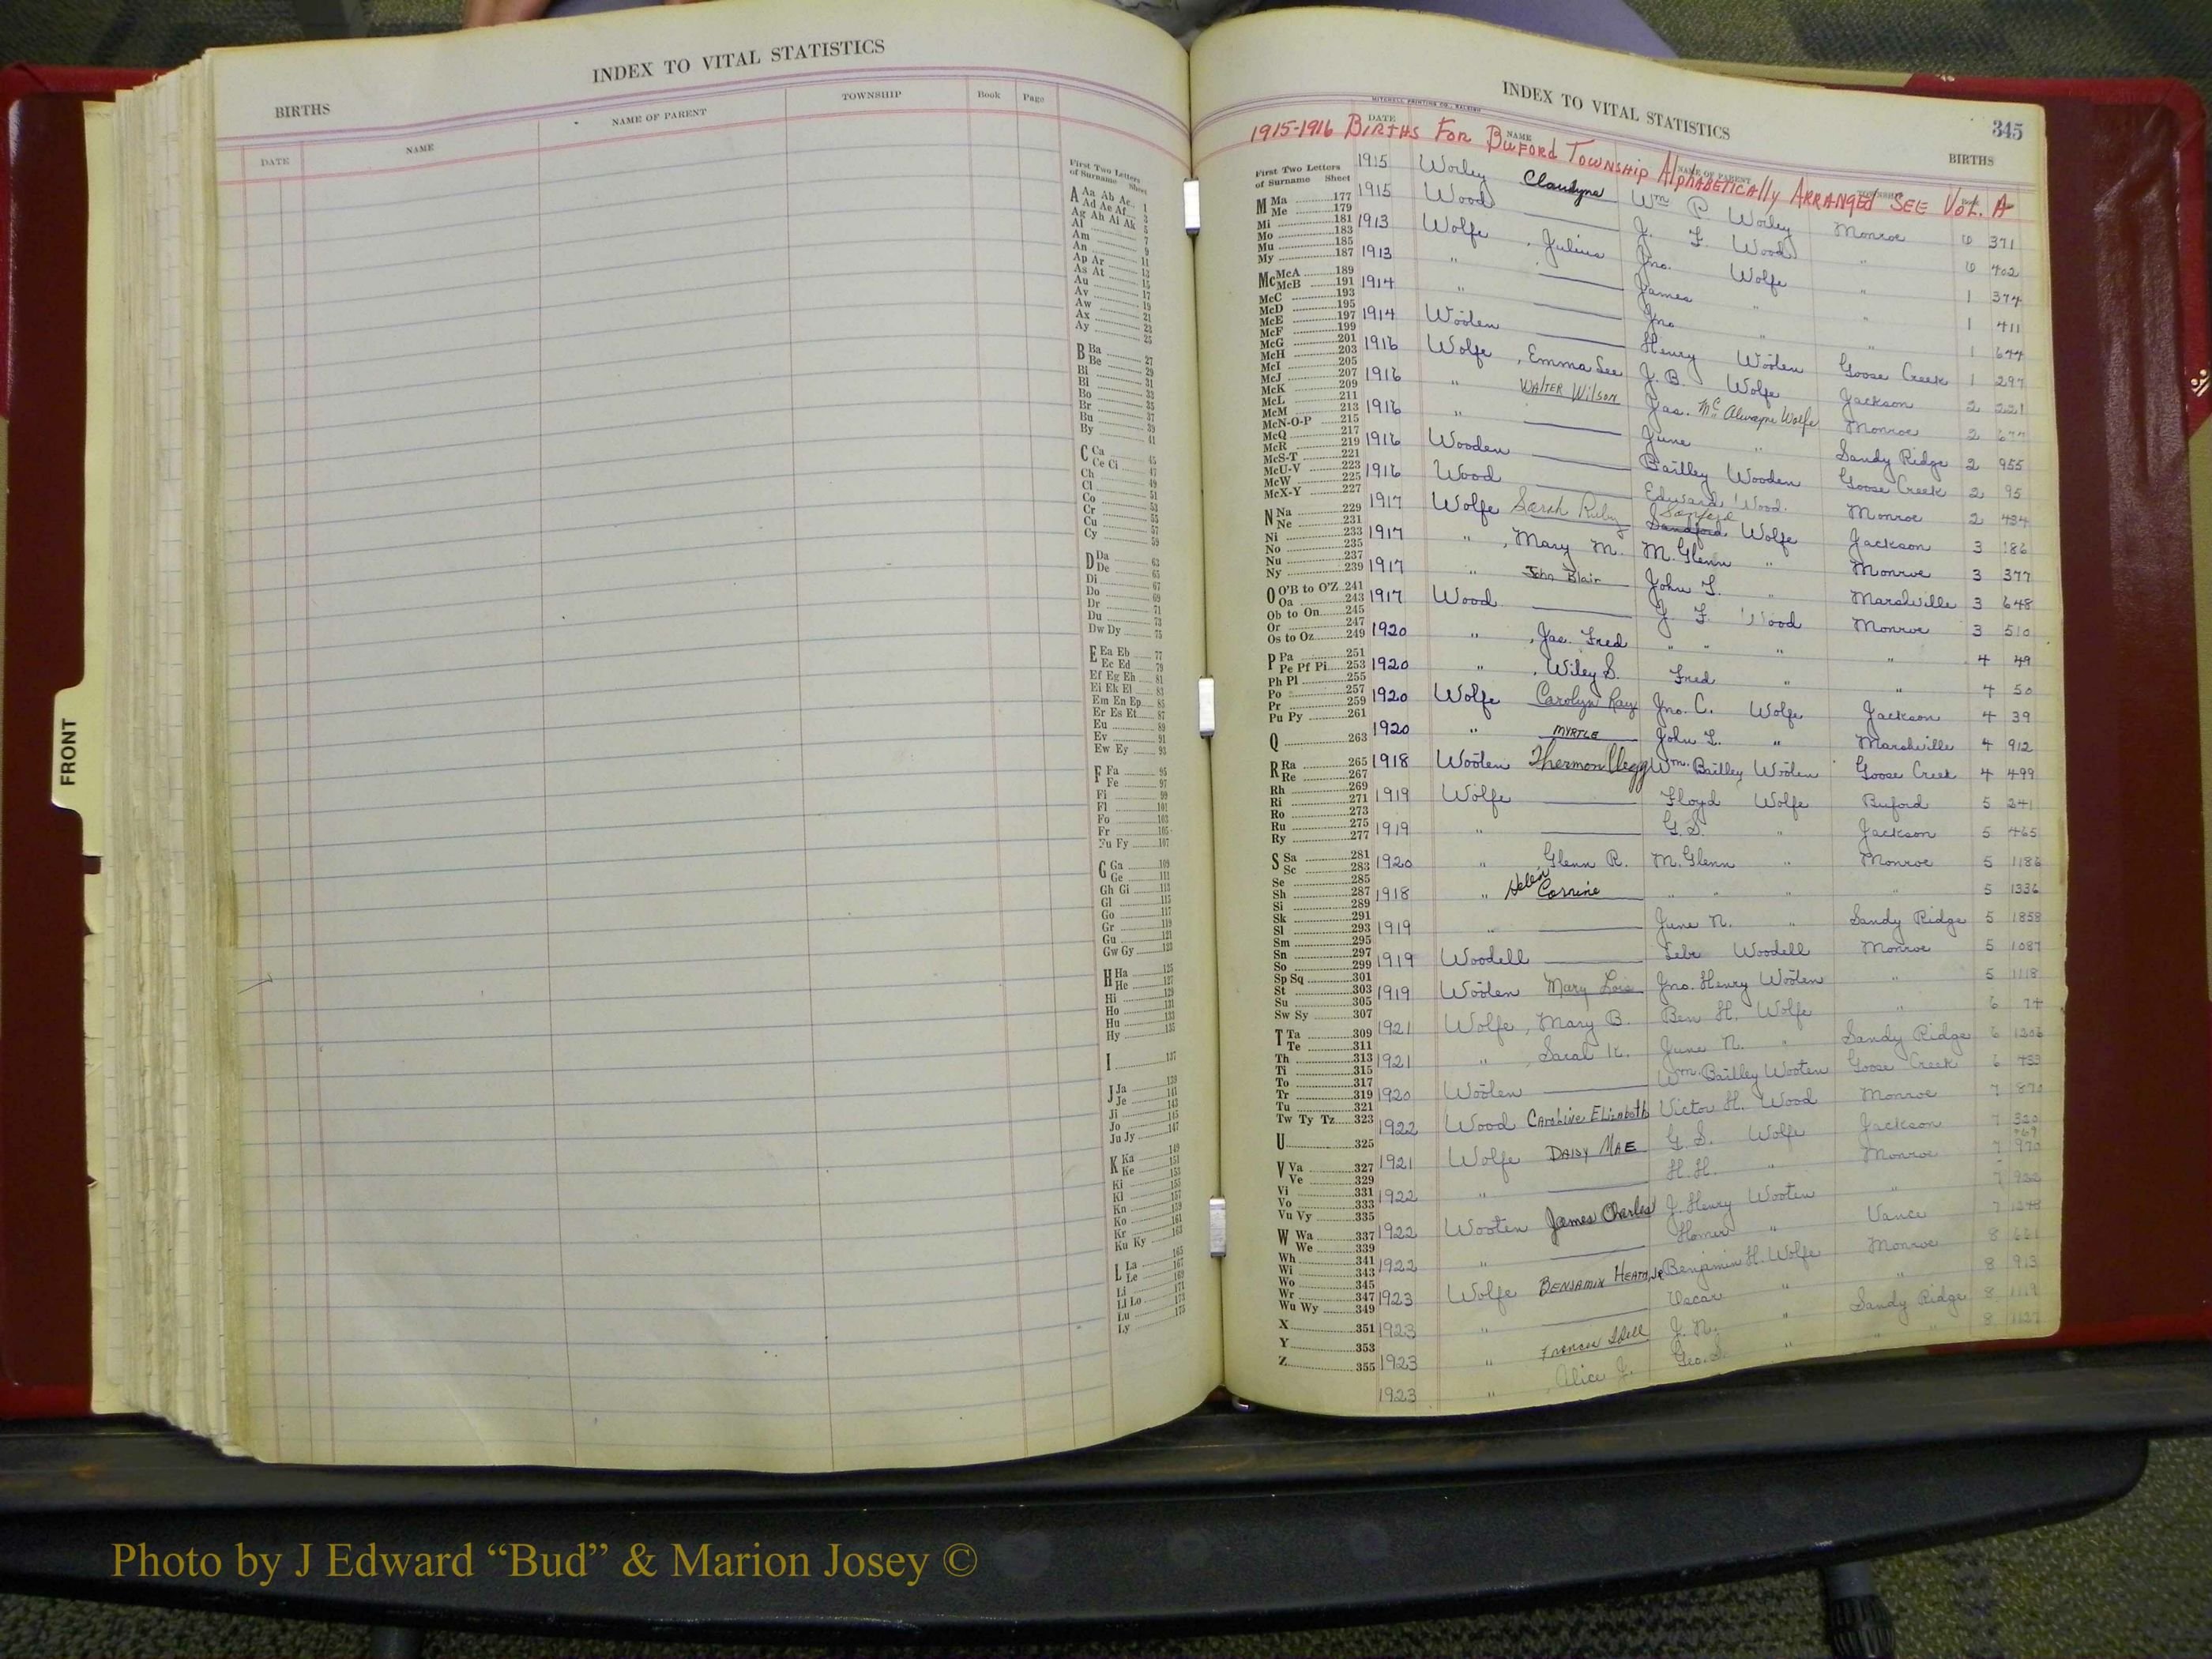 INDEX TO VITAL STATISTICS
BIRTHS
DATE NAME NAME OF PARENT TOWNSHIP Book Page
First Two Letters
of Surname Sheet
A Aa Ab Ac 1
Ad Ae Af 3
Ag Ah Ai Ak 5
Al 7
Am 9
An 11
Ap Ar 13
As At 15
Au 17
Av 19
Aw 21
Ax 23
Ay 25
B Ba 27
Be 29
Bi 31
Bl 33
Bo 35
Br 37
Bu 39
By 41
C Ca 45
Ce Ci 47
Ch 49
Cl 51
Co 53
Cr 55
Cu 57
Cy 59
D Da 63
De 65
Di 67
Do 69
Dr 71
Du 73
Dw Dy 75
E Ea Eb 77
Ec Ed 79
Ef Eg Eh 81
Ei Ek El 83
Em En Ep 85
Er Es Et 87
Eu 89
Ev 91
Ew Ey 93
F Fa 95
Fe 97
Fi 99
Fl 101
Fo 103
Fr 105
Fu Fy 107
G Ga 109
Ge 111
Gh Gi 113
Gl 115
Go 117
Gr 119
Gu 121
Gw Gy 123
H Ha 125
He 127
Hi 129
Ho 131
Hu 133
Hy 135
I 137
J Ja 139
Je 141
Ji 143
Jo 145
Ju Jy 147
K Ka 149
Ke 151
Ki 153
Kl 155
Kn 157
Ko 159
Kr 161
Ku Ky 163
L La 165
Le 167
Li 169
Ll Lo 171
Lu 173
Ly 175
FRONT
INDEX TO VITAL STATISTICS
345
MITCHELL PRINTING CO., RALEIGH
BIRTHS
DATE NAME NAME OF PARENT
1915-1916 BIRTHS FOR BUFORD TOWNSHIP ALPHABETICALLY ARRANGED SEE VOL. A
First Two Letters
of Surname Sheet
M Ma 177
Me 179
Mi 181
Mo 183
Mu 185
My 187
Mc McA 189
McB 191
McC 193
McD 195
McE 197
McF 199
McG 201
McH 203
McI 205
McJ 207
McK 209
McL 211
McM 213
McN-O-P 215
McQ 217
McR 219
McS-T 221
McU-V 223
McW 225
McX-Y 227
N Na 229
Ne 231
Ni 233
No 235
Nu 237
Ny 239
O O'B to O'Z 241
Oa 243
Ob to On 245
Or 247
Os to Oz 249
P Pa 251
Pe Pf Pi 253
Ph Pl 255
Po 257
Pr 259
Pu Py 261
Q 263
R Ra 265
Re 267
Rh 269
Ri 271
Ro 273
Ru 275
Ry 277
S Sa 281
Sc 283
Se 285
Sh 287
Si 289
Sk 291
Sl 293
Sm 295
Sn 297
So 299
Sp Sq 301
St 303
Su 305
Sw Sy 307
T Ta 309
Te 311
Th 313
Ti 315
To 317
Tr 319
Tu 321
Tw Ty Tz 323
U 325
V Va 327
Ve 329
Vi 331
Vo 333
Vu Vy 335
W Wa 337
We 339
Wh 341
Wi 343
Wo 345
Wr 347
Wu Wy 349
X 351
Y 353
Z 355
1915 Worley Claudyne Wm P. Worley Monroe 6 371
1915 Wood J. F. Wood " 6 402
1913 Wolfe, Julius Jno. Wolfe " 1 374
1913 " James " " 1 411
1914 " Jno " " 1 644
1914 Woolen Henry Woolen Goose Creek 1 297
1916 Wolfe, Emma Lee J. B. Wolfe Jackson 2 221
1916 " WALTER Wilson Jas. Wolfe Monroe 2
1916 " June " Sandy Ridge 2 955
1916 Wooden Bailley Wooden Goose Creek 2 95
1916 Wood Edward Wood. Monroe 2 434
1917 Wolfe Sarah Ruby Sanford Wolfe Jackson 3 186
1917 ", Mary M. M. Glenn " Monroe 3 377
1917 " John Blair John L. " Marshville 3 648
1917 Wood J. F. Wood Monroe 3 510
1920 ", Jas. Fred " " " " 4 49
1920 ", Wiley S. Fred " " 4 50
1920 Wolfe Carolyn Ray Jno. C. Wolfe Jackson 4 39
1920 " MYRTLE John L. " Marshville 4 912
1918 Woolen Thermon Clegg Wm. Bailley Woolen Goose Creek 4 499
1919 Wolfe Floyd Wolfe Buford 5 241
1919 " G. S. " Jackson 5 465
1920 ", Glenn R. M. Glenn " Monroe 5 1186
1918 " Helen Corrine " " " " 5 1336
1919 " June N. " Sandy Ridge 5 1858
1919 Woodell Woodell Monroe 5 1087
1919 Woolen Mary Lois Jno. Henry Woolen " 5 1118
1921 Wolfe, Mary B. Ben H. Wolfe " 6 74
1921 ", Sarah K. June N. " Sandy Ridge 6 1206
1920 Woolen Wm. Bailley Wooten Goose Creek 6 433
1922 Wood CAROLINE ELIZABETH Victor H. Wood Monroe 7 870
1921 Wolfe DAISY MAE G. S. Wolfe Jackson 7
1922 " H. H. " Monroe 7 970
1922 Wooten James Charles J. Henry Wooten " 7
1922 " Homer " Vance 7
1923 Wolfe BENJAMIN HEATH, JR Benjamin H. Wolfe Monroe 8
1923 " Oscar " " 8 913
1923 " Frances Idell J. N. " Sandy Ridge 8 1119
1923 ", Alice J. Geo. S. " " " 8 1127
Photo by J Edward “Bud” & Marion Josey ©